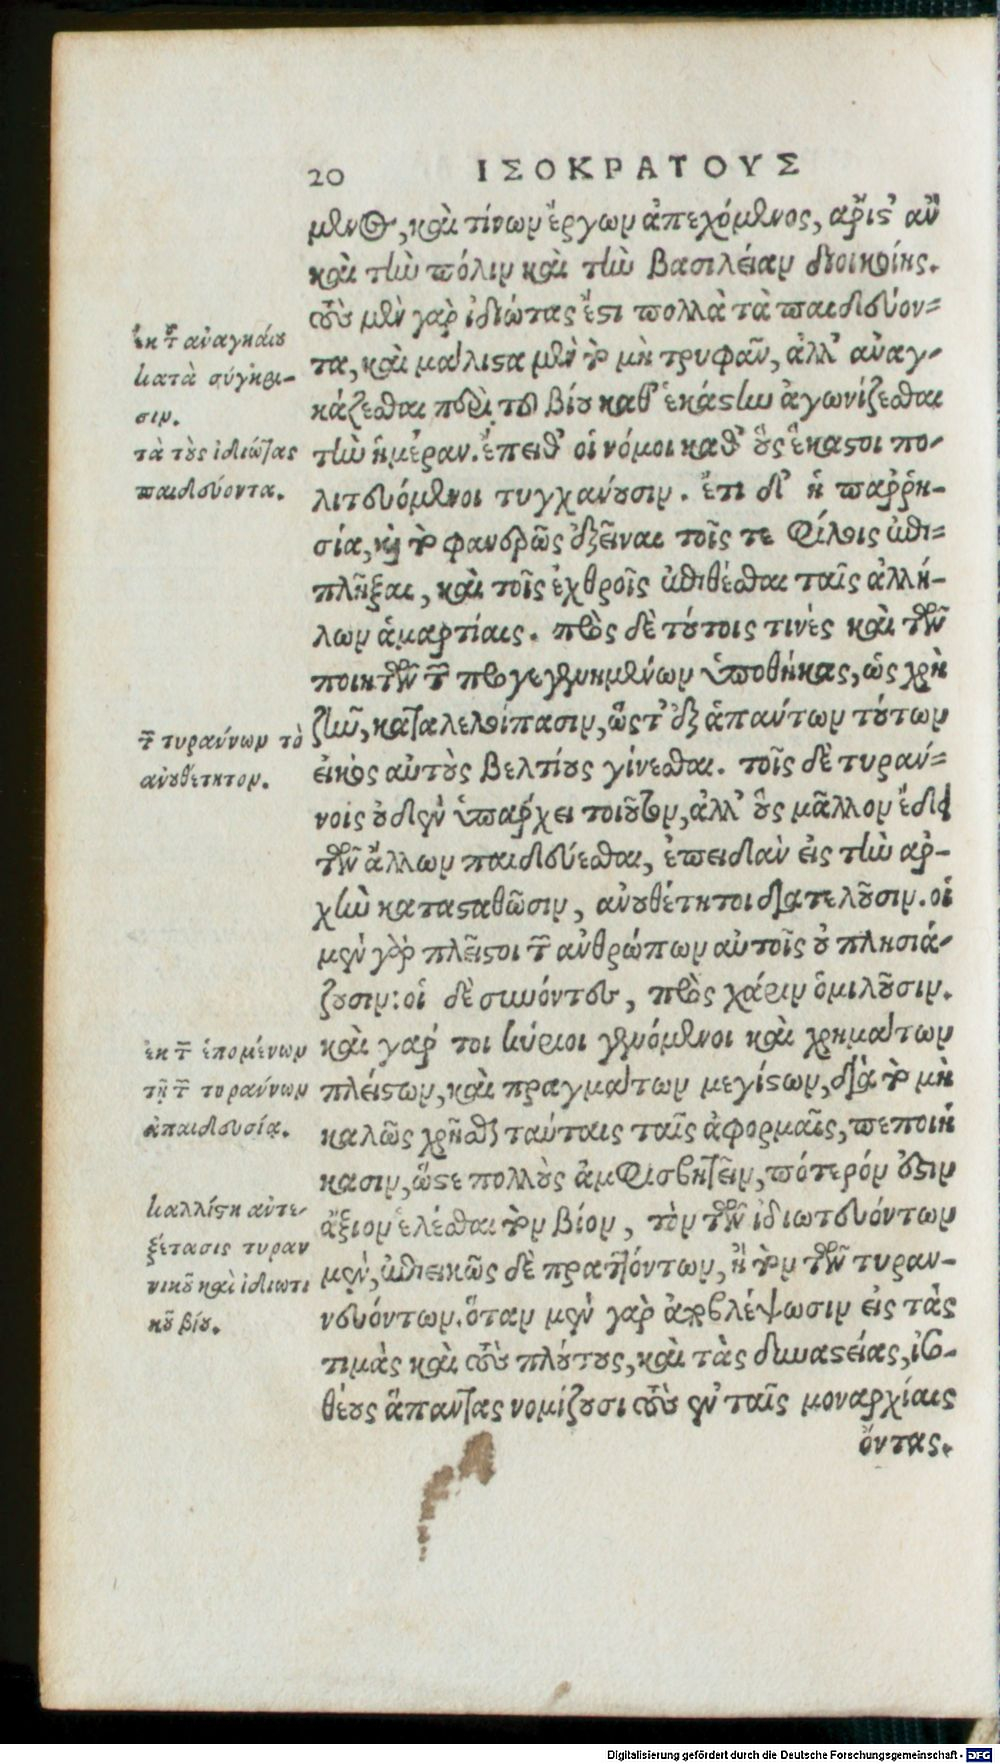 20 ΙΣΟΚΡΑΤΟΥΣ
μενος, καὶ τίνων ἔργων ἀπεχόμενος, ἄριστ' ἂν
καὶ τὴν πόλιν καὶ τὴν βασιλείαν διοικοίης.
τοὺς μὲν γὰρ ἰδιώτας ἔστι πολλὰ τὰ παιδεύον=
τα, καὶ μάλιστα μὲν τὸ μὴ τρυφᾶν, ἀλλ' ἀναγ-
κάζεσθαι περὶ τοῦ βίου καθ' ἑκάστην ἀγωνίζεσθαι
τὴν ἡμέραν. ἔπειθ' οἱ νόμοι καθ' οὓς ἕκαστοι πο-
λιτευόμενοι τυγχάνουσιν. ἔτι δ' ἡ παῤῥη-
σία, καὶ τὸ φανερῶς ἐξεῖναι τοῖς τε φίλοις ἐπι=
πλῆξαι, καὶ τοῖς ἐχθροῖς ἐπιθέσθαι ταῖς ἀλλή-
λων ἁμαρτίαις. πρὸς δὲ τούτοις τινὲς καὶ τῶν
ποιητῶν τῶν προγεγενημένων ὑποθήκας, ὡς χρὴ
ζῆν, καταλελοίπασιν, ὥστ' ἐξ ἁπάντων τούτων
εἰκὸς αὐτοὺς βελτίους γίνεσθαι. τοῖς δὲ τυράν=
νοις οὐδὲν ὑπάρχει τοιοῦτον, ἀλλ' οὓς μᾶλλον ἔδει
τῶν ἄλλων παιδεύεσθαι, ἐπειδὰν εἰς τὴν ἀρ-
χὴν κατασταθῶσιν, ἀνουθέτητοι διατελοῦσιν. οἱ
μὲν γὰρ πλεῖστοι τῶν ἀνθρώπων αὐτοῖς οὐ πλησιά-
ζουσιν: οἱ δὲ συνόντες, πρὸς χάριν ὁμιλοῦσιν.
καὶ γάρ τοι κύριοι γενόμενοι καὶ χρημάτων
πλείστων, καὶ πραγμάτων μεγίστων, διὰ τὸ μὴ
καλῶς χρῆσθαι ταύταις ταῖς ἀφορμαῖς, πεποιή
κασιν, ὥστε πολλοὺς ἀμφισβητεῖν, πότερόν ἐστιν
ἄξιον ἑλέσθαι τὸν βίον, τὸν τῶν ἰδιωτευόντων
μὲν, ἐπιεικῶς δὲ πραττόντων, ἢ τὸν τῶν τυραν-
νευόντων. ὅταν μὲν γὰρ ἀποβλέψωσιν εἰς τὰς
τιμὰς καὶ τοὺς πλούτους, καὶ τὰς δυναστείας, ἰσο-
θέους ἅπαντας νομίζουσι τοὺς ἐν ταῖς μοναρχίαις
ὄντας.
ἐκ τοῦ ἀναγκαίου
κατὰ σύγκρι-
σιν.
τὰ τοὺς ἰδιώτας
παιδεύοντα.
τῶν τυράννων τὸ
ἀνουθέτητον.
ἐκ τῶν ἑπομένων
τῇ τῶν τυράννων
ἀπαιδευσίᾳ.
καλλίστη ἀντε-
ξέτασις τυραν
νικοῦ καὶ ἰδιωτι
κοῦ βίου.
Digitalisierung gefördert durch die Deutsche Forschungsgemeinschaft - DFG